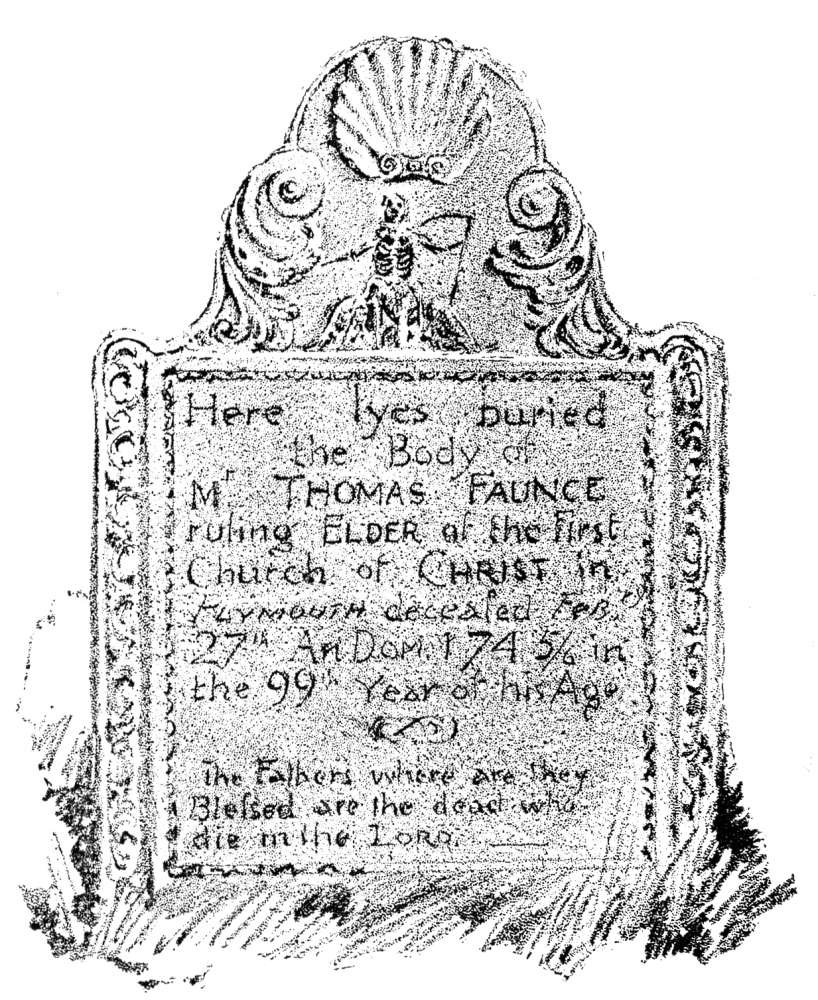 Here lyes buried
the Body of
Mr THOMAS FAUNCE
ruling ELDER of the First
Church of CHRIST in
PLYMOUTH deceaſed FEB.ry
27th An DOM. 174 5/6 in
the 99th Year of his Age
The Fathers where are they
Bleſsed are the dead who
die in the LORD.